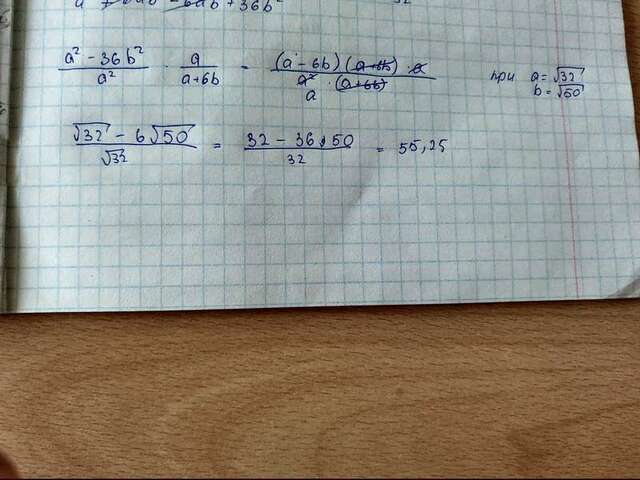 a² + 6ab - 6ab + 36b²
(a² - 36b²)/a² · a/(a+6b) = ((a - 6b)(a+6b) · a)/(a² · (a+6b)) a при a = √32
b = √50
(√32 - 6√50)/√32 = (32 - 36·50)/32 = 55,25